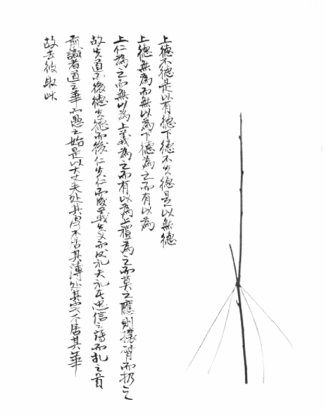 上德不德是以有德下德不失德是以無德
上德無為而無以為下德為之而有以為
上仁為之而無以為上義為之而有以為上禮為之而莫之應則攘臂而扔之
故失道而後德失德而後仁失仁而後義失義而後礼夫礼者忠信之薄而乱之首
前識者道之華而愚之始是以大丈夫处其厚不居其薄处其实不居其華
故去彼取此